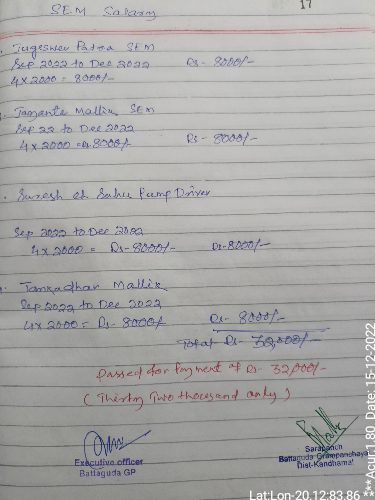 17
SEM Salary
Jugeswar Patra SEM
Sep 2022 to Dec 2022 Rs- 8000/-
4 x 2000 = 8000/-
Jayanta Mallik SEM
Sep 22 to Dec 2022
4 x 2000 = Rs 8000/- Rs- 8000/-
Suresh ch Sahu Pump Driver
Sep 2022 to Dec 2022
4 x 2000 = Rs- 8000/- Rs- 8000/-
Mallik
Sep 2022 to Dec 2022
4 x 2000 = Rs- 8000/- Rs- 8000/-
Total Rs- 32,000/-
Passed for Payment of Rs- 32,000/-
( Thirty Two thousand only )
Executive officer
Battaguda GP
Sarapanch
Battaguda Grampanchaya
Dist-Kandhamal
Lat:Lon-20.12:83.86 ***Acur:1.80 Date: 15-12-2022